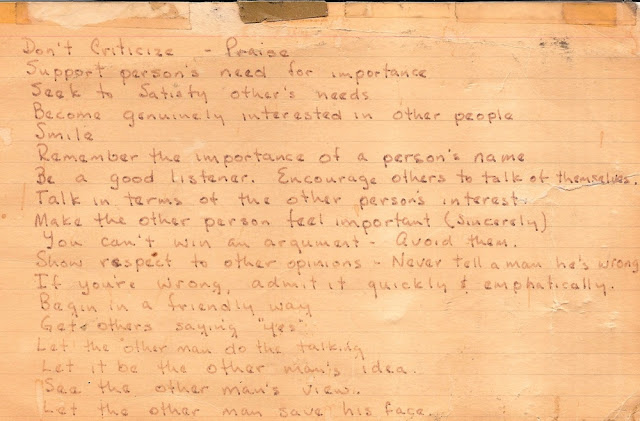 Don't Criticize - Praise
Support person's need for importance
Seek to Satisfy other's needs
Become genuinely interested in other people
Smile
Remember the importance of a person's name
Be a good listener. Encourage others to talk of themselves.
Talk in terms of the other person's interest.
Make the other person feel important (sincerely)
You can't win an argument - Avoid them.
Show respect to other opinions - Never tell a man he's wrong
If you're wrong, admit it quickly & emphatically.
Begin in a friendly way
Get others saying "yes"
Let the other man do the talking
Let it be the other man's idea.
See the other man's view.
Let the other man save his face.